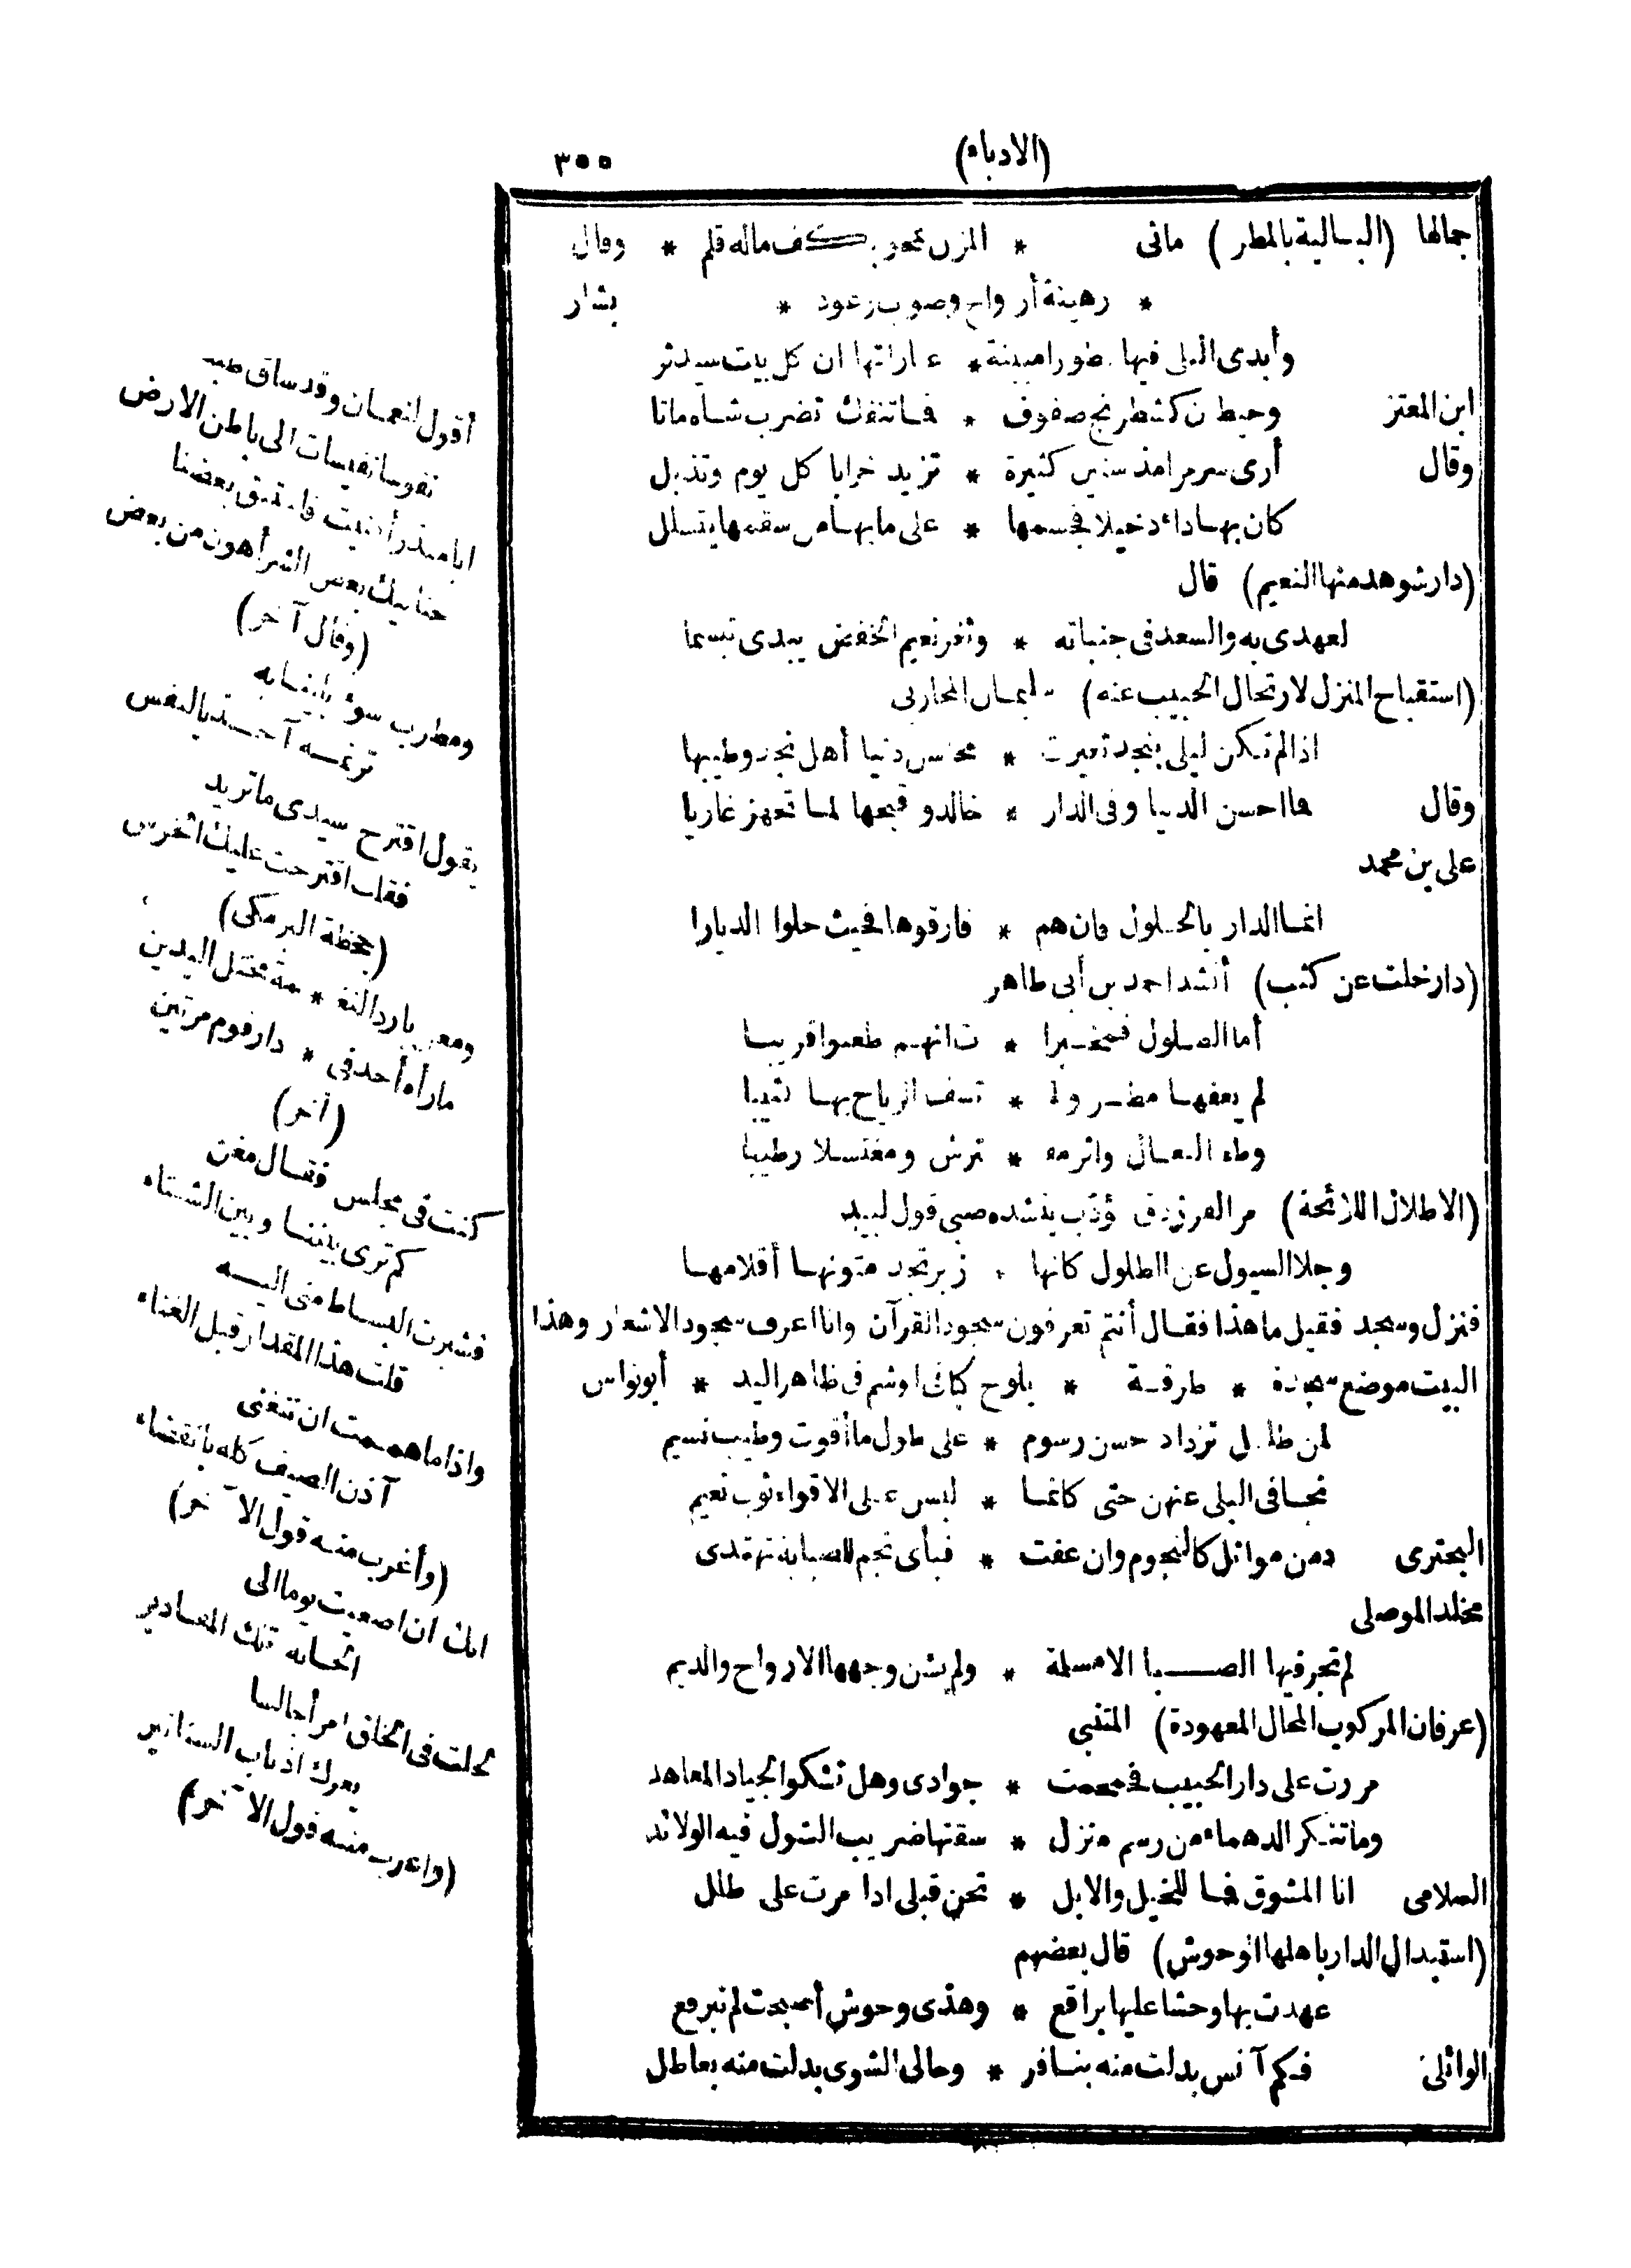 (الادباء) ٣٥٥
جمالها (البالية بالمطر) مانى * المزن تمحو بكف ماله قلم * وقال
* رهينة أرواح وصوب رعود * بشار
وأبدى البلى فيها سطورا مبينة * عباراتها ان كل بيت سيدثر
ابن المعتز وحيطان كشطرنج صفوف * فما تنفك تضرب شاه ماتا
وقال أرى سرمرا مذ سنين كثيرة * تزيد خرابا كل يوم وتذبل
كان بها داء دخيلا فجسمها * على ما بها من سقمها يتسلل
(دار شوهد منها النعيم) قال
لعهدى به والسعد فى جنباته * وثغر نعيم الخفض يبدى تبسما
(استقباح المنزل لارتحال الحبيب عنه) سليمان المحاربى
اذا لم تكن ليلى بنجد تغيرت * محاسن دنيا أهل نجد وطيبها
وقال فما احسن الدنيا وفى الدار * خالد وقبحها لما تجهز غازيا
على بن محمد
انما الدار بالحلول فان هم * فارقوها فحيث حلوا الديارا
(دار خلت عن كثب) أنشد احمد بن أبى طاهر
أما الطلول فمخبرا * ت انهم ظعنوا قريبا
لم يعفها مطر ولا * تسف الرياح بها كثيبا
وطء النعال واثر * ترش ومغتسلا رطيبا
(الاطلال اللائحة) مر الفرزدق بمؤدب ينشده صبى قول لبيد
وجلا السيول عن الطلول كانها * زبر تجد متونها أقلامها
فنزل وسجد فقيل ما هذا فقال أنتم تعرفون سجود القرآن وانا اعرف سجود الاشعار وهذا
البيت موضع سجوده * طرفة * يلوح كباقى الوشم فى ظاهر اليد * أبو نواس
لمن طلل تزداد حسن رسوم * على طول ما أقوت وطيب نسيم
تجافى البلى عنهن حتى كانما * لبسن على الاقواء ثوب نعيم
البحترى دمن مواثل كالنجوم وان عفت * فبأى نجم للصبابة نهتدى
مخلد الموصلى
لم تجر فيها الصبا الا مسلمة * ولم يشن وجهها الارواح والديم
(عرفان المركوب المحال المعهودة) المتنبى
مررت على دار الحبيب فحمحمت * جوادى وهل تشكو الجياد المعاهد
وما تنكر الدهماء من رسم منزل * سقتها ضريب الشول فيه الولائد
السلامى انا المشوق فما للخيل والابل * تحن قبلى اذا مرت على طلل
(استبدال الدار باهلها الوحوش) قال بعضهم
عهدت بها وحشا عليها براقع * وهذى وحوش أصبحت لم تبرقع
الوائلى فكم آنس بدلت منه بنافر * وحالى الشوى بدلت منه بعاطل
أقول لنعمان وقد ساق طبه
نفوسا نفيسات الى باطن الارض
ابا منذر أفنيت فاستبق بعضنا
حنانيك بعض الشر أهون من بعض
(وقال آخر)
ومطرب سؤ
ترنمه آحـ ـد بالنفس
يقول اقترح سيدى ما تريد
فقلت اقترحت عليك الخرس
(جحظة البرمكى)
ومغن بارد النغـ * ـمة مختل اليدين
ما رأه أحد فى * دار قوم مرتين
(آخر)
كنت فى مجلس فقال مغن
كم ترى بيننا وبين الشتاء
فشبرت البساط منى اليه
قلت هذا المقدار قبل الغناء
واذا ما هممت ان تتغنى
آذن الصيف كله بانقضاء
(وأغرب منه قول الآخر)
انك ان اصغيت يوما الى
الحانه تلك المعاذير
خلت فى الخلق امرأ جالسا
يعرك اذناب السنانير
(واغرب منه قول الآخر)